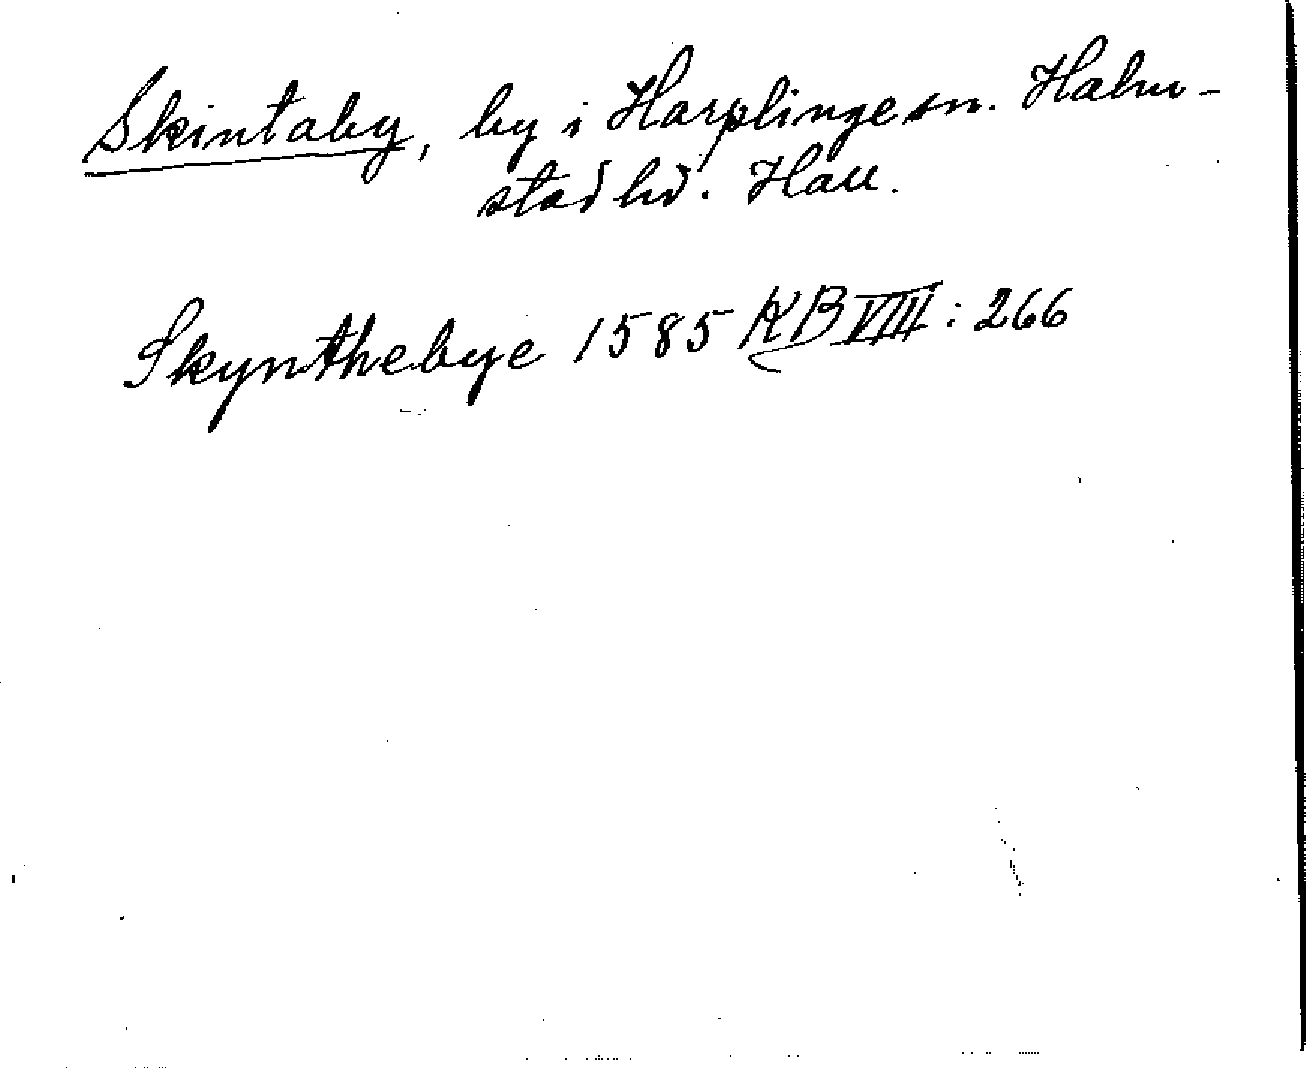 Skintaby, by i Harplinge sn. Halm-
stad hd. Hall.
Skynthebye 1585 KB VIII: 266